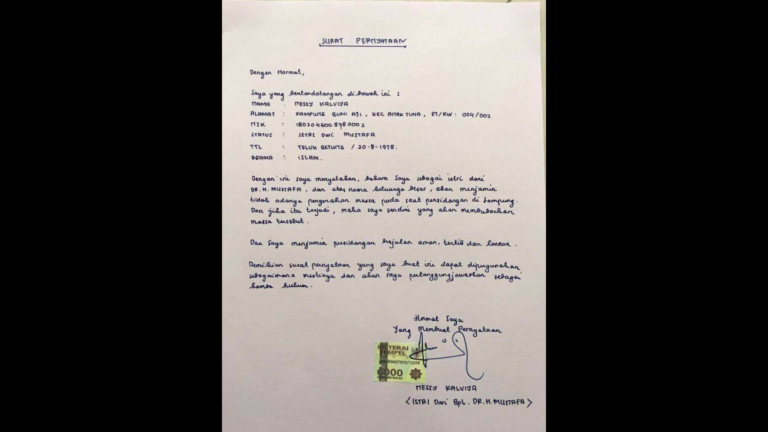 SURAT PERNYATAAN
Dengan Hormat,
Saya yang bertandatangan di bawah ini :
NAMA : MESSY KALVIYA
ALAMAT : KAMPUNG BUMI AJI, KEC ANAK TUHA, RT/RW : 004/002
NIK : 1802046008780002
STATUS : ISTRI DARI MUSTAFA
TTL : TELUK BETUNG / 20-8-1978.
AGAMA : ISLAM.
Dengan ini saya menyatakan, bahwa saya sebagai istri dari
DR.H.MUSTAFA, dan atas nama keluarga besar, akan menjamin
tidak adanya pengerahan massa pada saat persidangan di Lampung.
Dan jika itu terjadi, maka saya sendiri yang akan membubarkan
massa tersebut.
Dan Saya menjamin persidangan berjalan aman, tertib dan lancar.
Demikian surat pernyataan yang saya buat ini dapat dipergunakan
sebagaimana mestinya dan akan saya pertanggungjawabkan sebagai
hamba hukum.
Hormat Saya
Yang Membuat Pernyataan
METERAI
TEMPEL
6000
MESSY KALVIYA
(ISTRI Dari Bpk. DR.H.MUSTAFA)